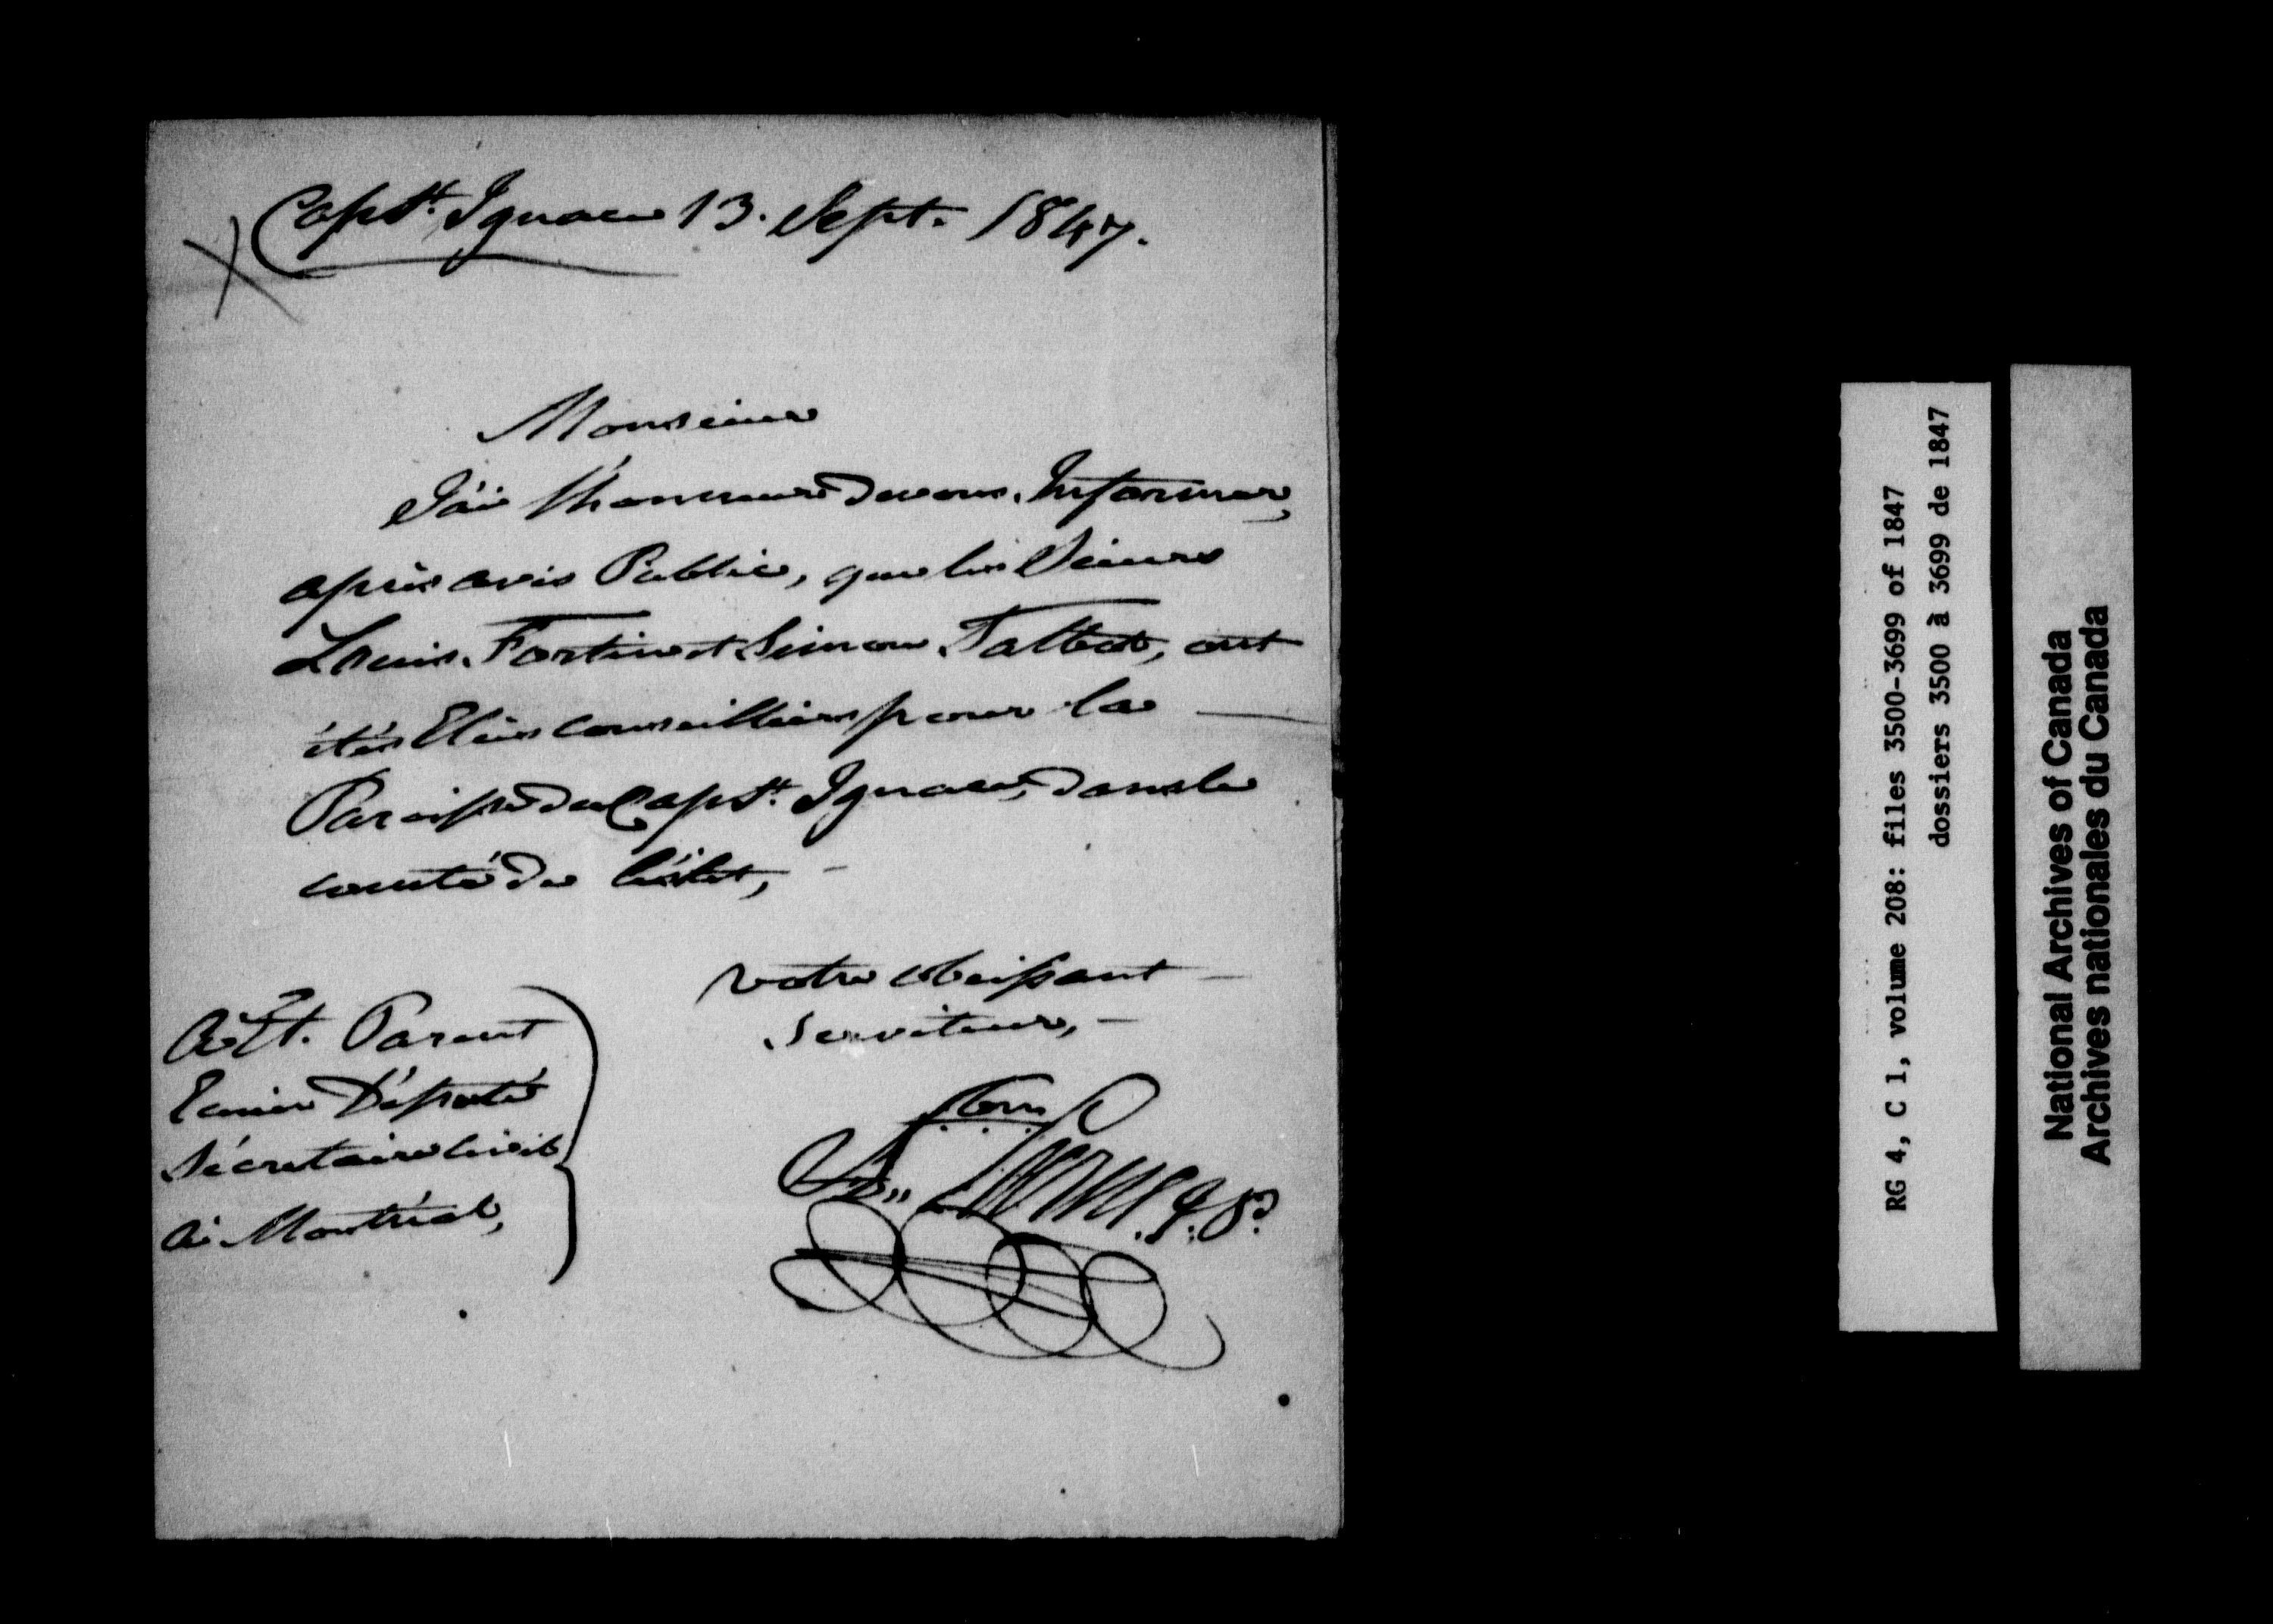 Cap St. Ignace 13. Sept. 1847.
Monsieur
J'ai l'honneur de vous Informer,
après avis Public, que les Sieurs
Louis Fortin et Simon Talbot, ont
étés Élus conseillers pour la
Paroisse du Cap St. Ignace, dans le
comté de l'islet,
votre obeissant
Serviteur,
à Et. Parent
Ecuier Député
Sécretaire Civil
à Montréal,
RG 4, C 1, volume 208: files 3500-3699 of 1847
dossiers 3500 à 3699 de 1847
National Archives of Canada
Archives nationales du Canada